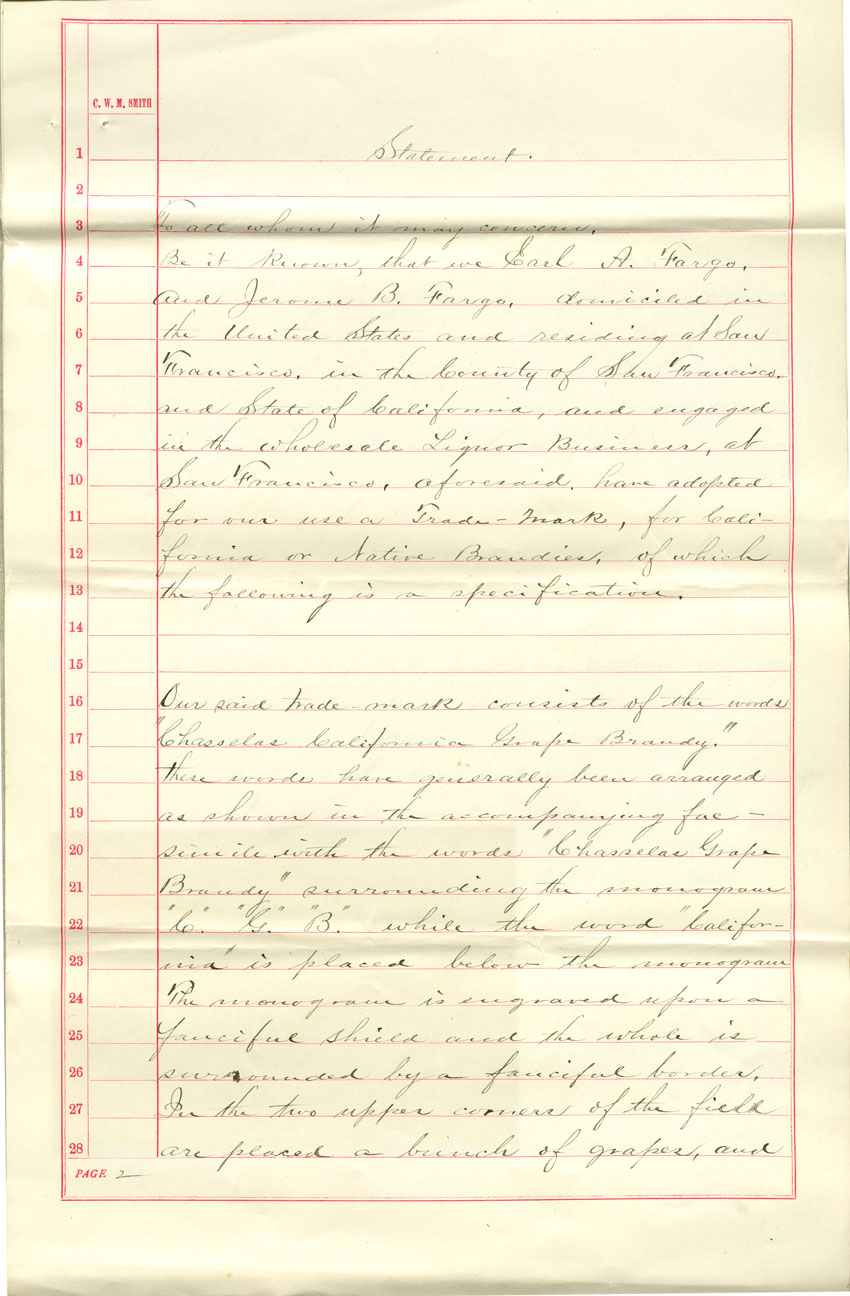 C. W. M. SMITH
1 Statement.
2
3 To all whom it may concern.
4 Be it Known, that we Earl A. Fargo,
5 and Jerome B. Fargo, domiciled in
6 the United States and residing at San
7 Francisco, in the County of San Francisco,
8 and State of California, and engaged
9 in the wholesale Liquor Business, at
10 San Francisco, aforesaid, have adopted
11 for our use a Trade-Mark, for Cali-
12 fornia or Native Brandies, of which
13 the following is a specification.
14
15
16 Our said trade-mark consists of the words
17 "Chasselas California Grape Brandy."
18 These words have generally been arranged
19 as shown in the accompanying fac-
20 simile with the words "Chasselas Grape
21 Brandy" surrounding the monogram
22 "C." "G." "B." while the word "Califor-
23 nia" is placed below the monogram
24 The monogram is engraved upon a
25 fanciful shield and the whole is
26 surrounded by a fanciful border.
27 In the two upper corners of the field
28 are placed a bunch of grapes, and
PAGE 2